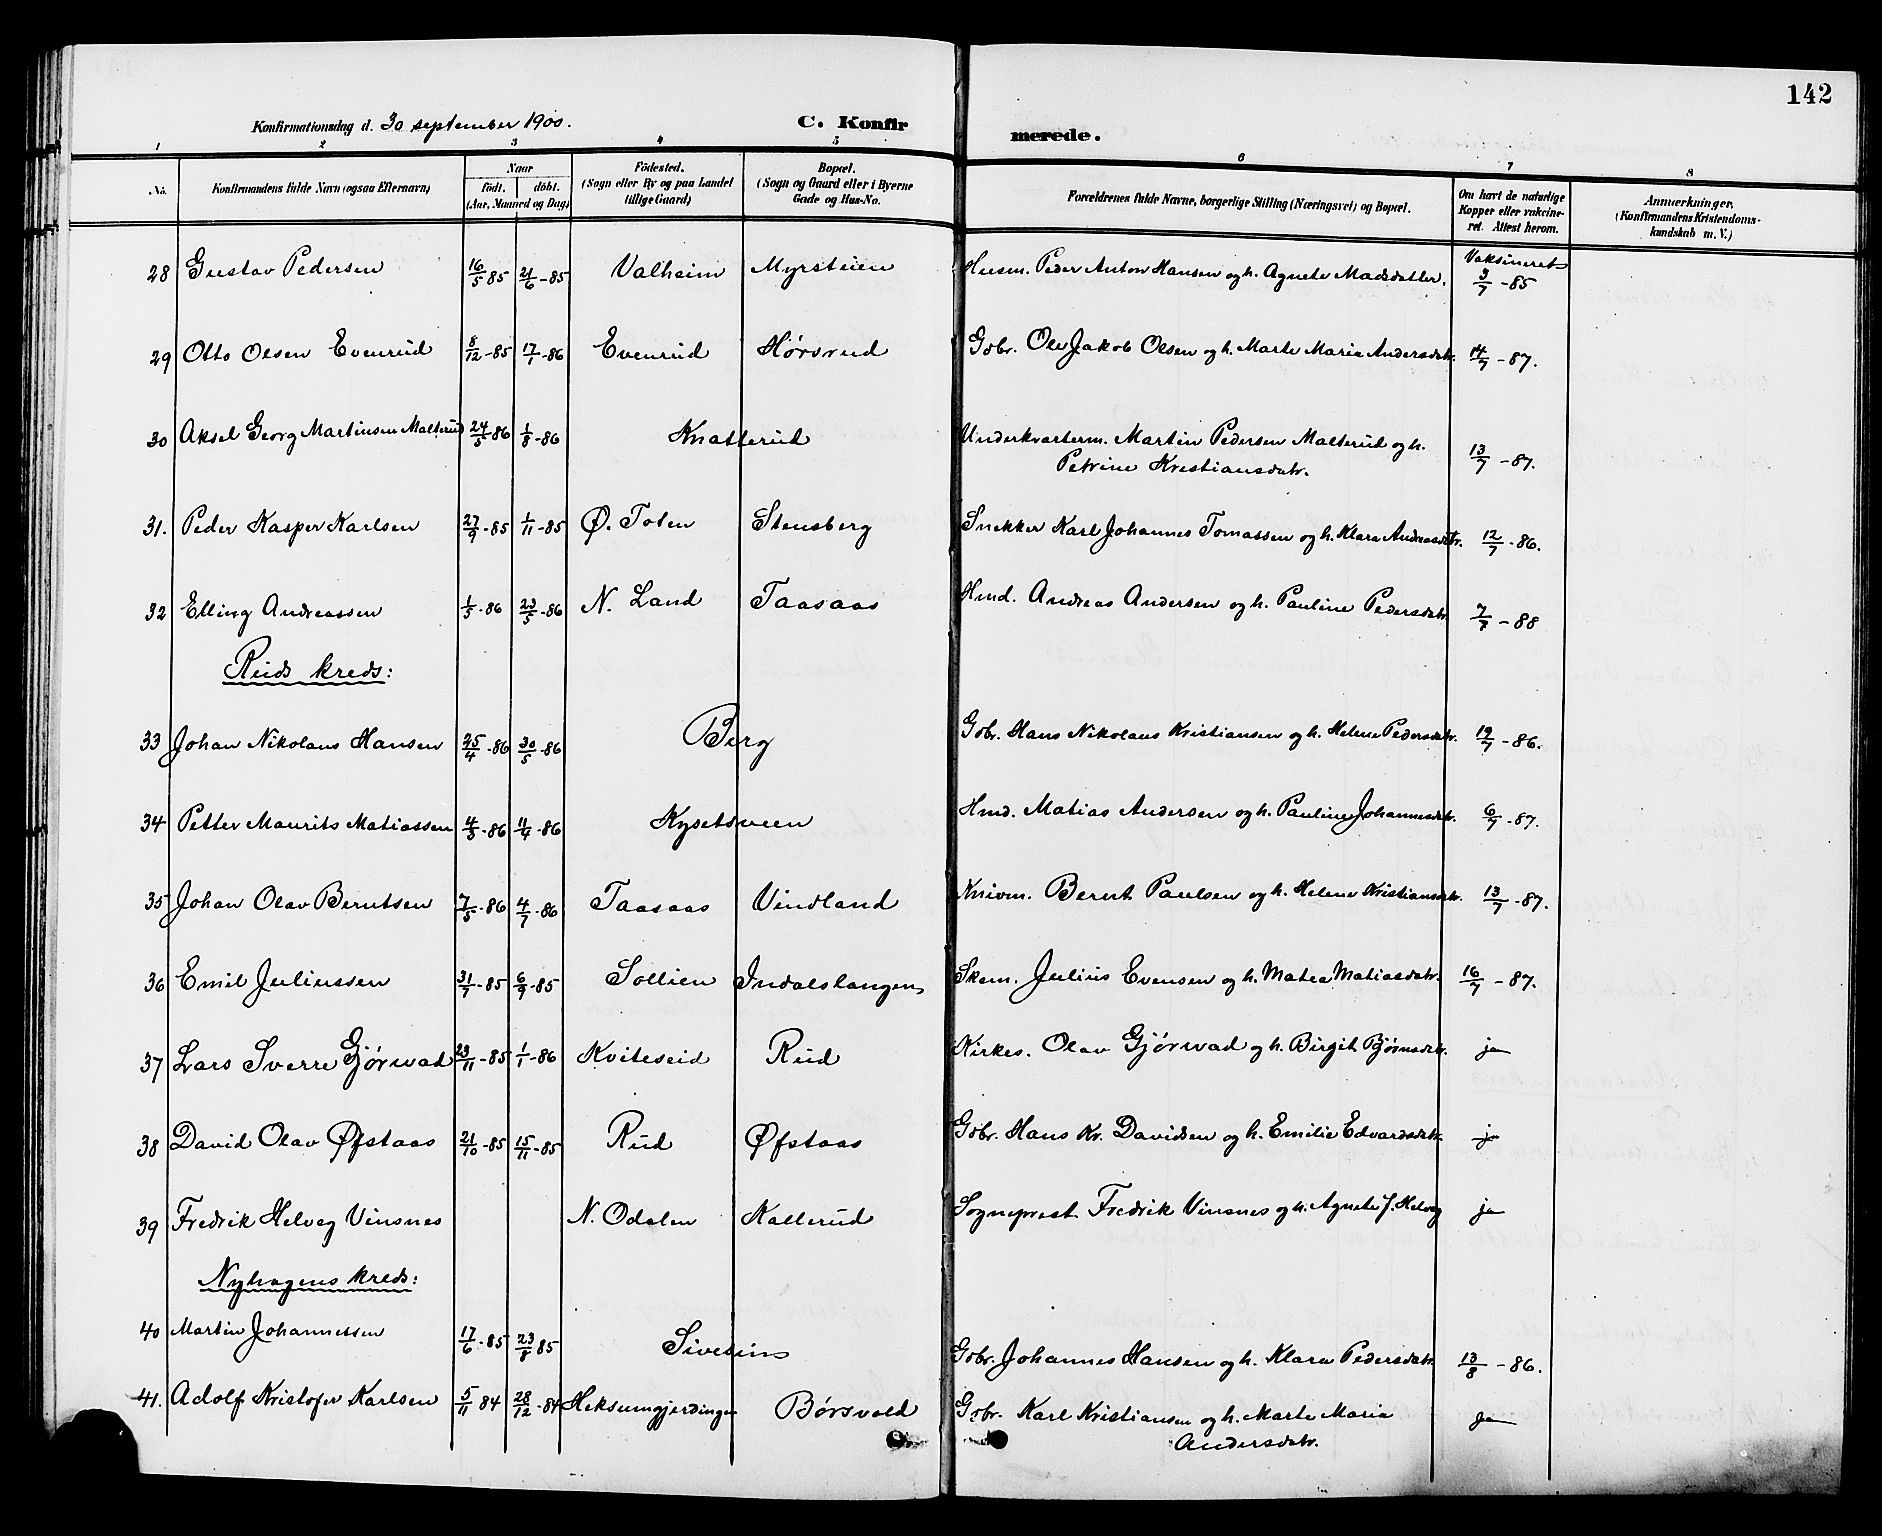 142
Konfirmationsdag d. 30 september 1900. C. Konfirmerede.
1 2 3 4 5 6 7 8
No. Konfirmandens fulde Navn (ogsaa Efternavn) Naar födt. döbt. (Aar, Maaned og Dag) Födested. (Sogn eller By og paa Landet tillige Gaard) Bopæl. (Sogn og Gaard eller i Byerne Gade og Hus-No. Forældrenes fulde Navne, borgerlige Stilling (Næringsvei) og Bopæl. Om havt de naturlige Kopper eller vakcineret. Attest herom. Anmærkninger. (Konfirmandens Kristendomskundskab m. V.)
28 Gustav Pedersen 16/5 85 21/6 - 85 Valheim Myrsteien Husm. Peder Anton Hansen og h. Agnete Madsdatter. Vaksineret 3/7 - 85
29 Otto Olsen Evenrud 8/12 - 85 17/1 - 86 Evenrud Hørsrud Gbr. Ole Jakob Olsen og h. Marte Maria Andersdatr. 14/7 - 87.
30 Aksel Georg Martinsen Malterud 24/5 86 1/8 - 86 Knatterud Underkvarterm. Martin Pedersen Malterud og h.
Petrine Kristiansdatr. 13/7 - 87.
31. Peder Kasper Karlsen 27/9 - 85 1/11 - 85 Ø. Toten Stensberg Snekker Karl Johannes Tomassen og h. Klara Andreasdtr. 12/7 - 86.
32 Elling Andreassen 1/5 - 86 23/5 - 86 N. Land Taasaas Hmd. Andreas Andersen og h. Pauline Pedersdatr. 7/7 - 88
Ruds kreds:
33 Johan Nikolaus Hansen 25/4 - 86 30/5 - 86 Berg Gbr. Hans Nikolaus Kristiansen og h. Helene Pedersdatr. 19/7 - 86.
34 Petter Maurits Matiassen 4/3 - 86 11/4 - 86 Kysetsveen Hmd. Matias Andersen og h. Pauline Johannesdatr. 6/7 - 87.
35 Johan Olav Berntsen 7/5 - 86 4/7 - 86 Taasaas Vindland Knivm. Bernt Paulsen og h. Helene Kristiansdtr. 13/7 - 87.
36 Emil Juliussen 31/7 - 85 6/9 - 85 Sollien Indalslangen Skom. Julius Evensen og h. Matea Matiasdatr. 16/7 - 87.
37 Lars Sverre Gjörwad 23/11 - 85 1/1 - 86 Kviteseid Rud Kirkes. Olav Gjörwad og h. Birgit Bjørnsdtr. ja
38 David Olav Øfstaas 21/10 - 85 15/11 - 85 Rud Øfstaas Gbr. Hans Kr. Davidsen og h. Emilie Edvardsdtr. ja
39 Fredrik Helveg Vinsnes N. Odalen Kallerud Sogneprest Fredrik Vinsnes og h. Agnete f. Helveg ja
Nyhagens kreds:
40 Martin Johannessen 17/6 - 85 23/8 85 Sivesind Gbr. Johannes Hansen og h. Klara Pedersdatr. 13/8 - 86.
41. Adolf Kristofer Karlsen 5/11 84 28/12 - 84 Heksumgjerdingen Børsvold Gbr. Karl Kristiansen og h. Marte Maria
Andersdatr. Ja